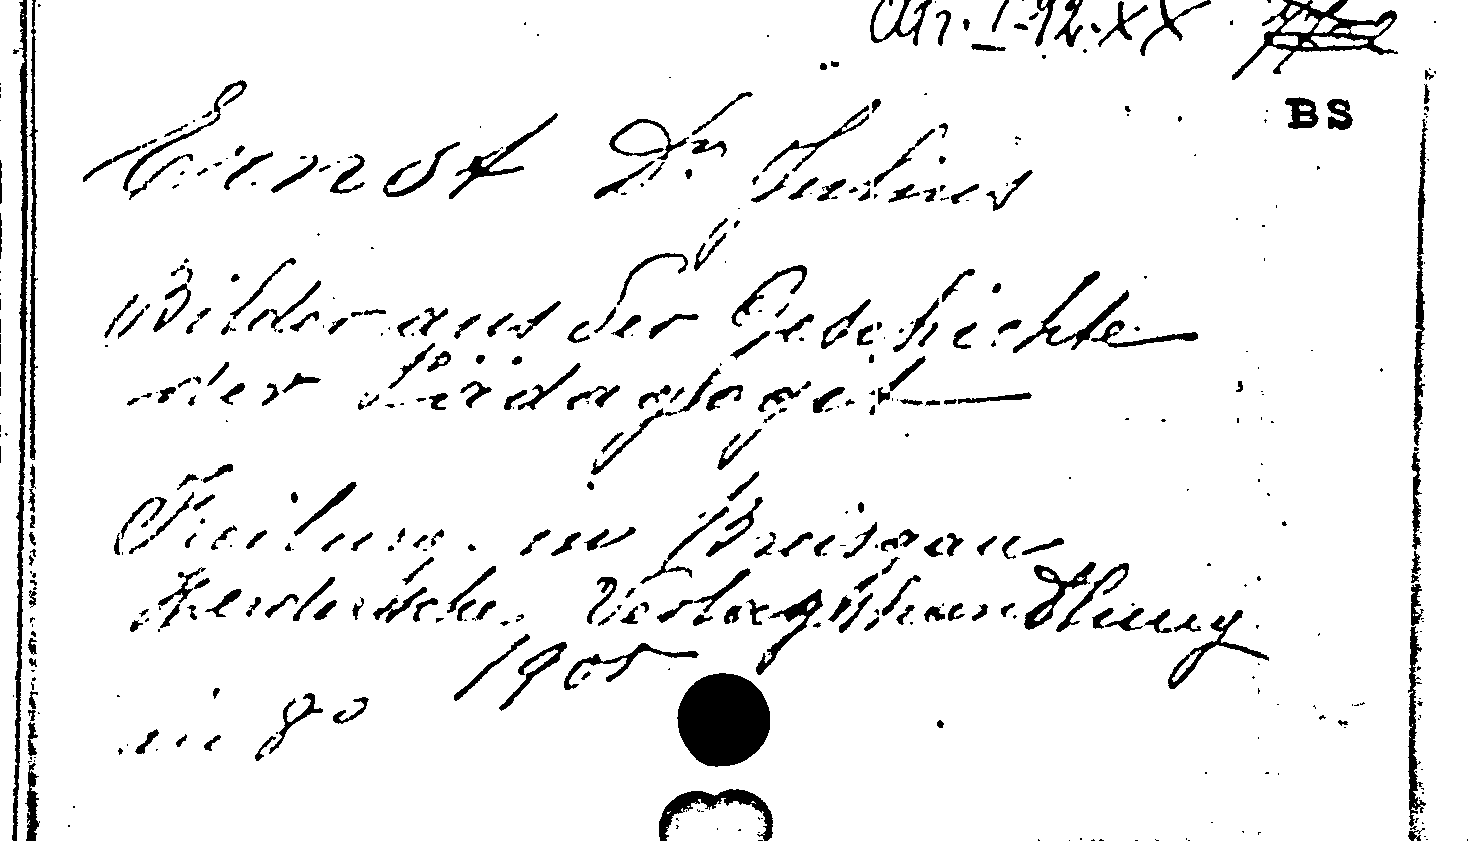 BS
Ernst Dr. Julius
Bilder aus der Geschichte
der Pädagogik
Freiburg. im Breisgau
Herdersche Verlagshandlung
1905
in 80